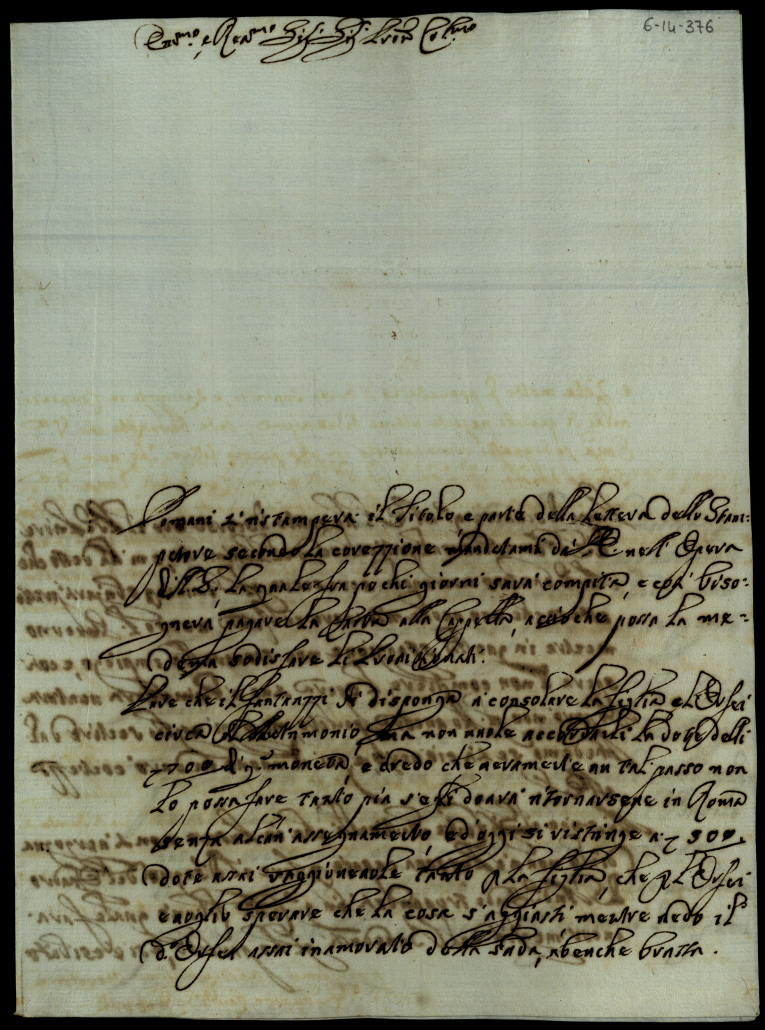 6-14-376
Emo, e Remo Sig.r Sig.r Pron Col.mo
Domani si ristamperà il Titolo e parte della Lettera dello Stam:
patore secondo la corezzione mandatami da nell'Opera
la quale fra pochi giorni sarà compita, e così biso:
gnerà pagare la Carta alla Cappella, acciòche possa la me:
dema sodisfare li
Pare che il Fantazzi si disponga a consolare la figlia e l'Orfei
circa il Matrimonio, ma non vuole accordarli la dote delli
700 d.q. moneta, e credo che veramente un tal passo non
lo possa fare tanto più se si dovrà ritornarsene in Roma
senza alcun assegnamento, ed oggi si ristringe a 500.
dote assai raggionevole tanto p la figlia, che p l'Orfei
e voglio sperare che la cosa s'aggiusti mentre vedo il
d.o Orfei assai inamorato della sada, abenche brutta.